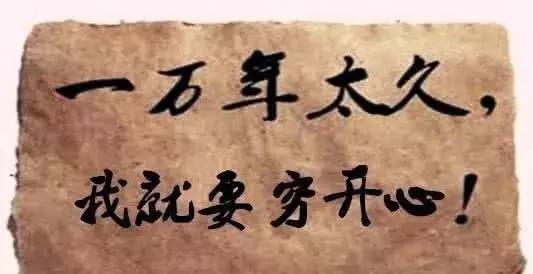 一万年太久，
我就要穷开心！